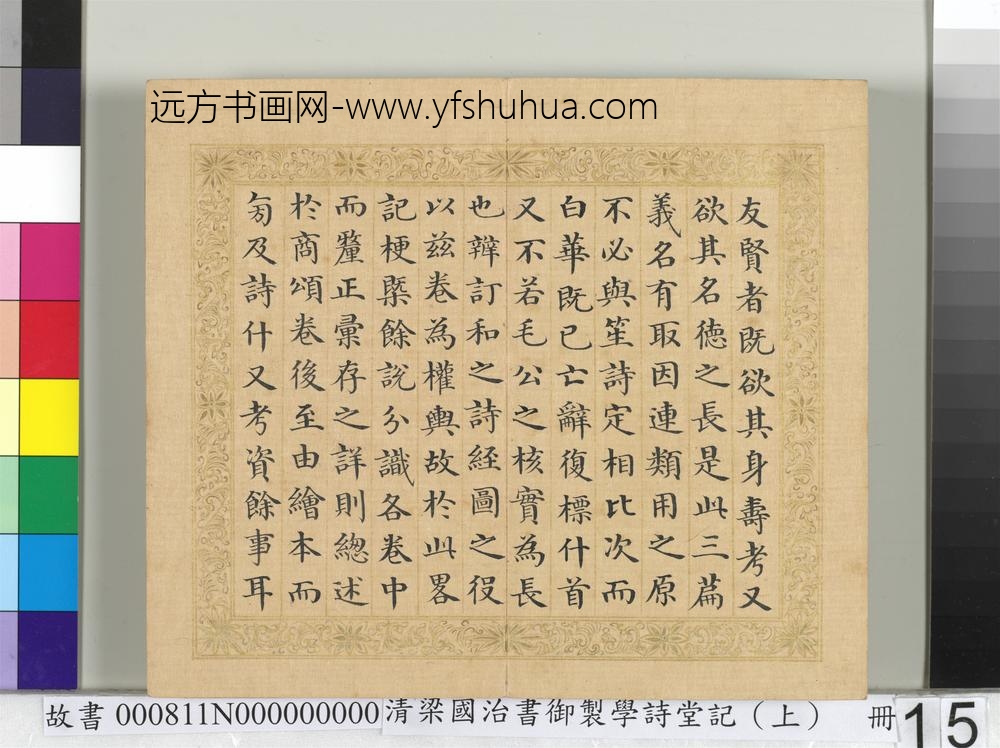 远方书画网-www.yfshuhua.com
友賢者既欲其身壽考又
欲其名德之長是此三篇
義名有取因連類用之原
不必與笙詩定相比次而
白華既已亡辭復標什首
又不若毛公之核實為長
也辯訂和之詩經圖之役
以兹卷為權輿故於此畧
記梗槩餘說分識各卷中
而釐正彙存之詳則總述
於商頌卷後至由繪本而
旁及詩什又考資餘事耳
故書 000811N000000000 清梁國治書御製學詩堂記（上） 冊 15